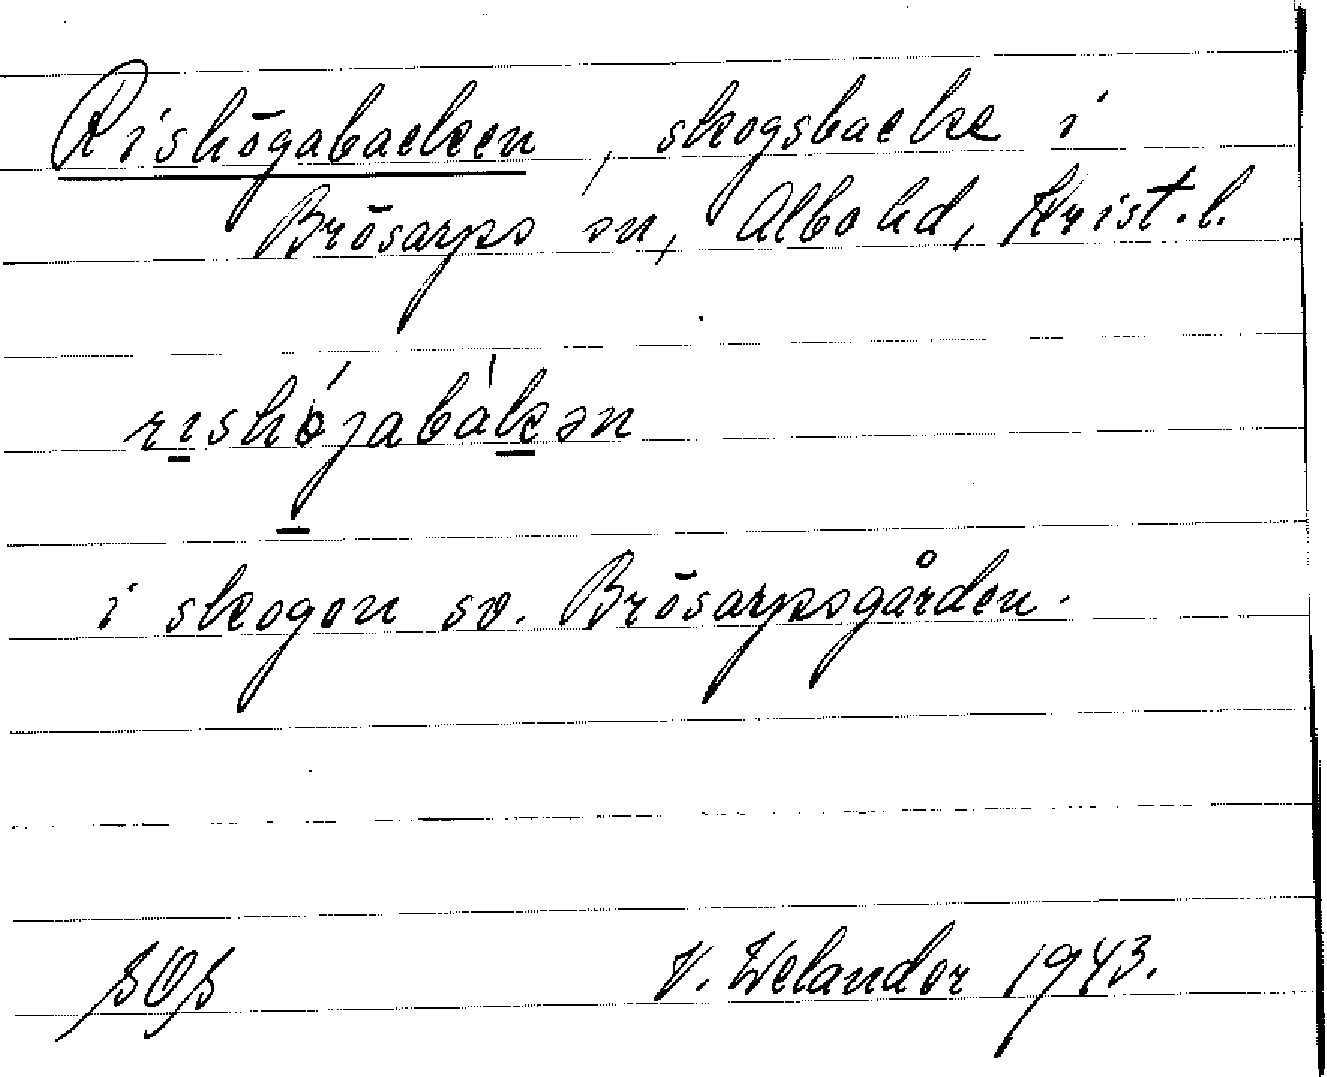 Rishögabacken, skogsbacke i
Brösarps sn, Albo hd, Krist. l.
rıshǿjabákən
i skogen sv. Brösarpsgården.
V. Welander 1943.